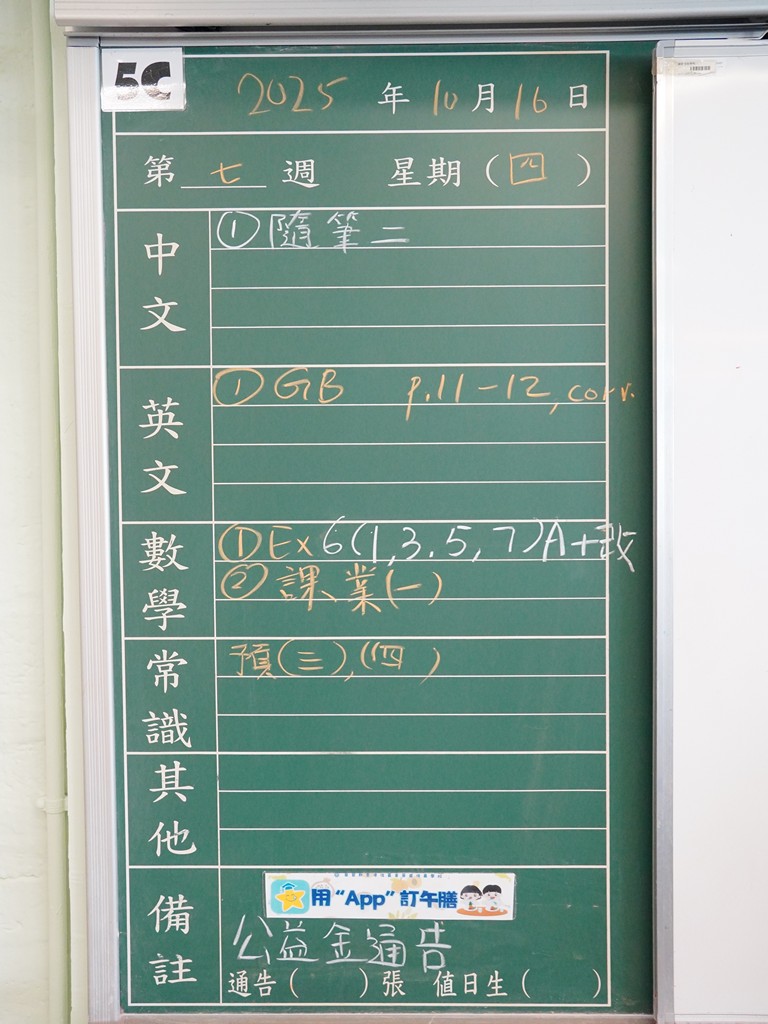 5C
2025 年 10 月 16 日
第 七 週 星期 (四)
中文
① 隨筆二
英文
① GB p.11-12, corr.
數學
① Ex 6(1,3,5,7)A+改
② 課業(一)
常識
預(三),(四)
其他
備註
用 “App” 訂午膳
公益金通告
通告 ( ) 張 值日生 ( )